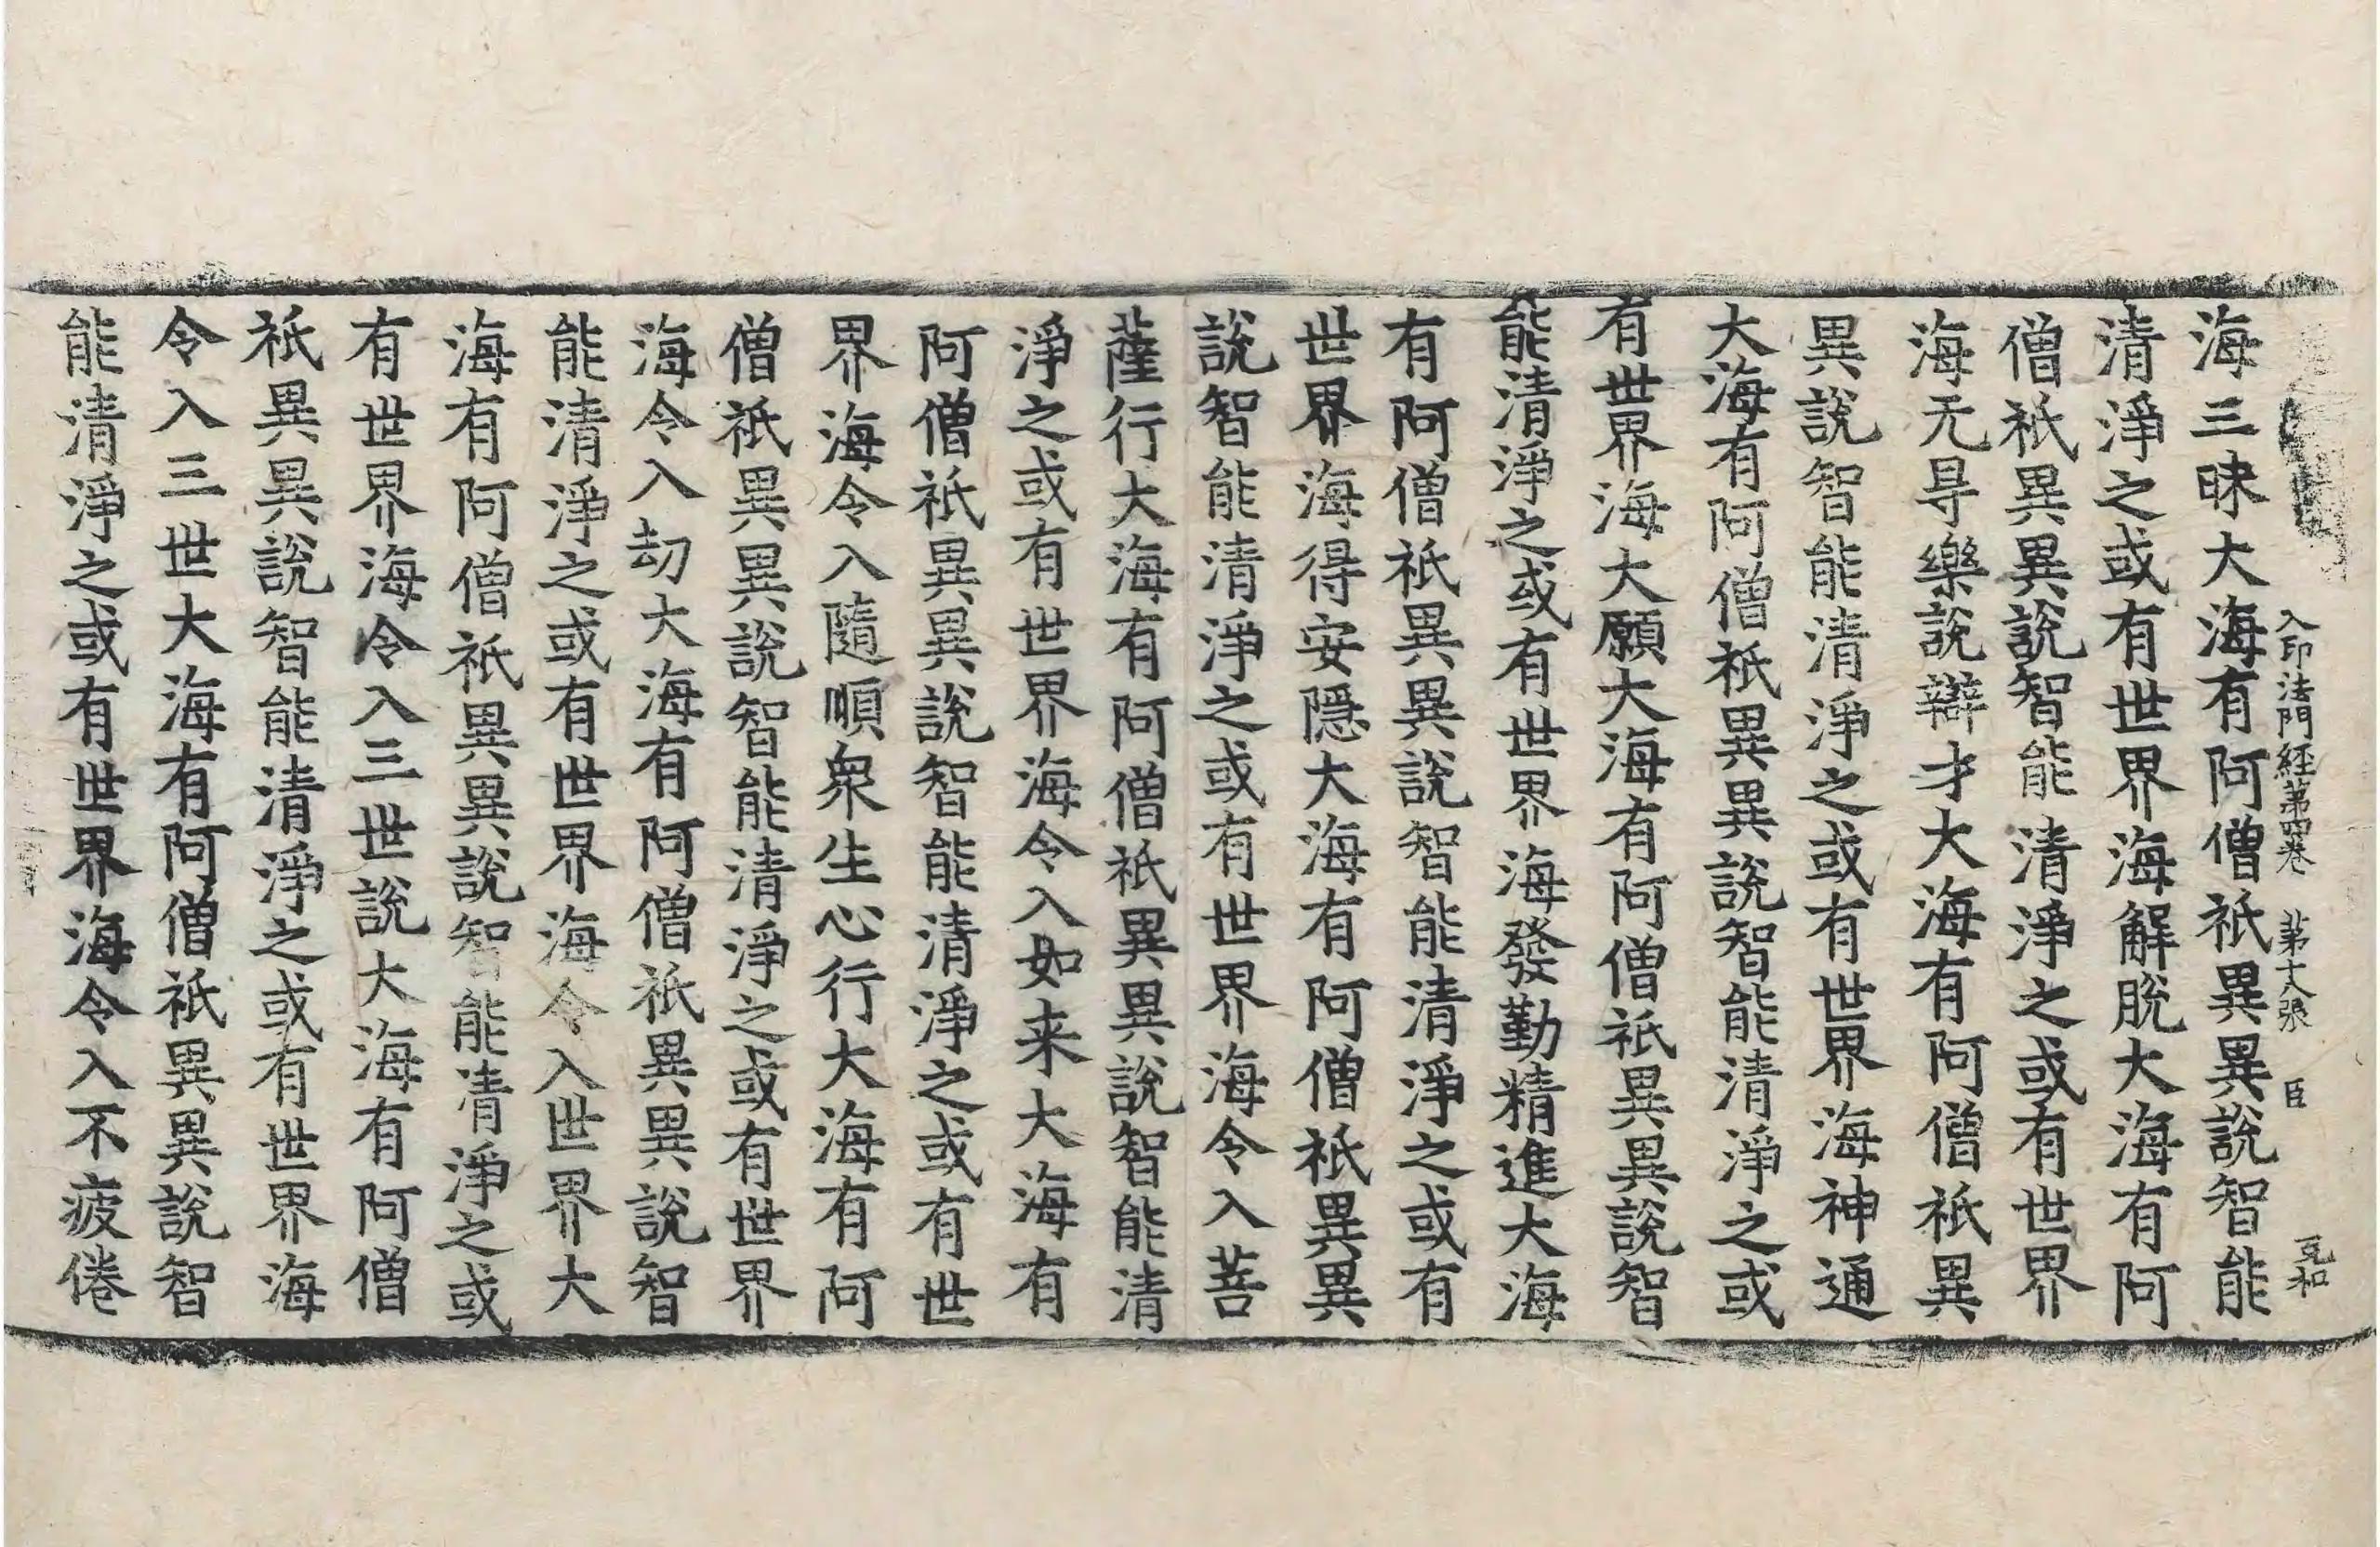 入印法門經第四卷 第十八張 臣
海三昧大海有阿僧祇異異說智能
清淨之或有世界海解脫大海有阿
僧祇異異說智能清淨之或有世界
海无㝵樂說辯才大海有阿僧祇異
異說智能清淨之或有世界海神通
大海有阿僧祇異異說智能清淨之或
有世界海大願大海有阿僧祇異異說智
能清淨之或有世界海發勤精進大海
有阿僧祇異異說智能清淨之或有
世界海得安隱大海有阿僧祇異異
說智能清淨之或有世界海令入菩
薩行大海有阿僧祇異異說智能清
淨之或有世界海令入如来大海有
阿僧祇異異說智能清淨之或有世
界海令入隨順衆生心行大海有阿
僧祇異異說智能清淨之或有世界
海令入劫大海有阿僧祇異異說智
能清淨之或有世界海令入世界大
海有阿僧祇異異說智能清淨之或
有世界海令入三世說大海有阿僧
祇異異說智能清淨之或有世界海
令入三世大海有阿僧祇異異說智
能清淨之或有世界海令入不疲倦